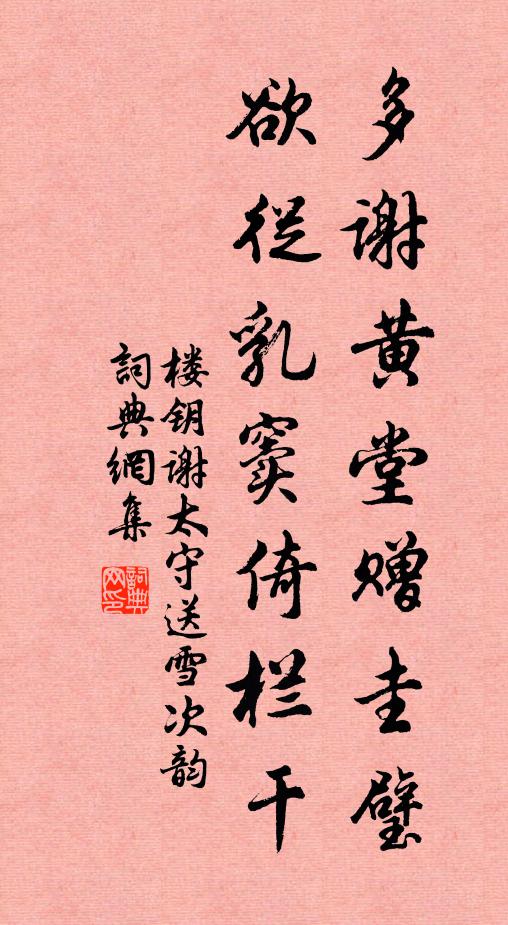 多谢黄堂赠圭璧
欲从乳窦倚栏干
楼钥谢太守送雪次韵
詞典網集
詞典网印